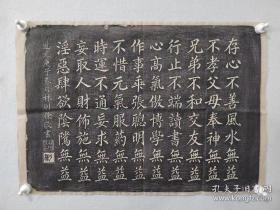 存心不善風水無益
不孝父母奉神無益
兄弟不和交友無益
行止不端讀書無益
心高氣傲博學無益
作事乖張聰明無益
不惜元氣服藥無益
時運不通妄求無益
妄取人財佈施無益
淫惡肆欲陰騭無益
林則徐書
孔夫子旧书网